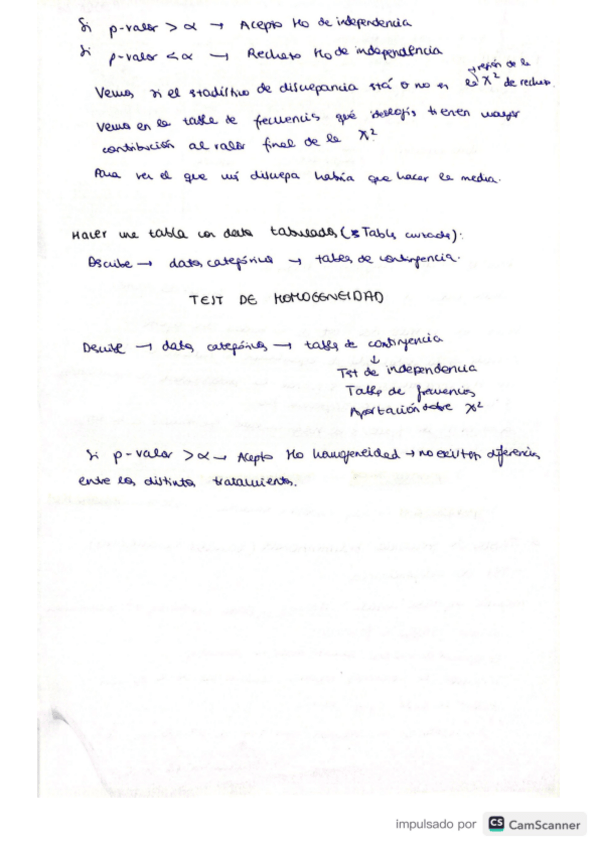 Si p-valor > α → Acepto Ho de independencia
Si p-valor < α → Rechazo Ho de independencia
Vemos si el estadístico de discrepancia está o no en la χ² de rechazo.
región de la
Vemos en la tabla de frecuencias qué tienen mayor
contribución al valor final de la χ²
Para ver el que más discrepa habría que hacer la media.
Hacer una tabla con datos tabulados (Tabla cruzada):
Describe → datos categóricos → tablas de contingencia.
TEST DE HOMOGENEIDAD
Describe → datos categóricos → tabla de contingencia
↓
Test de independencia
Tabla de frecuencias
Aportación sobre χ²
Si p-valor > α → Acepto Ho homogeneidad → no existen diferencias
entre los distintos tratamientos.
impulsado por CS CamScanner